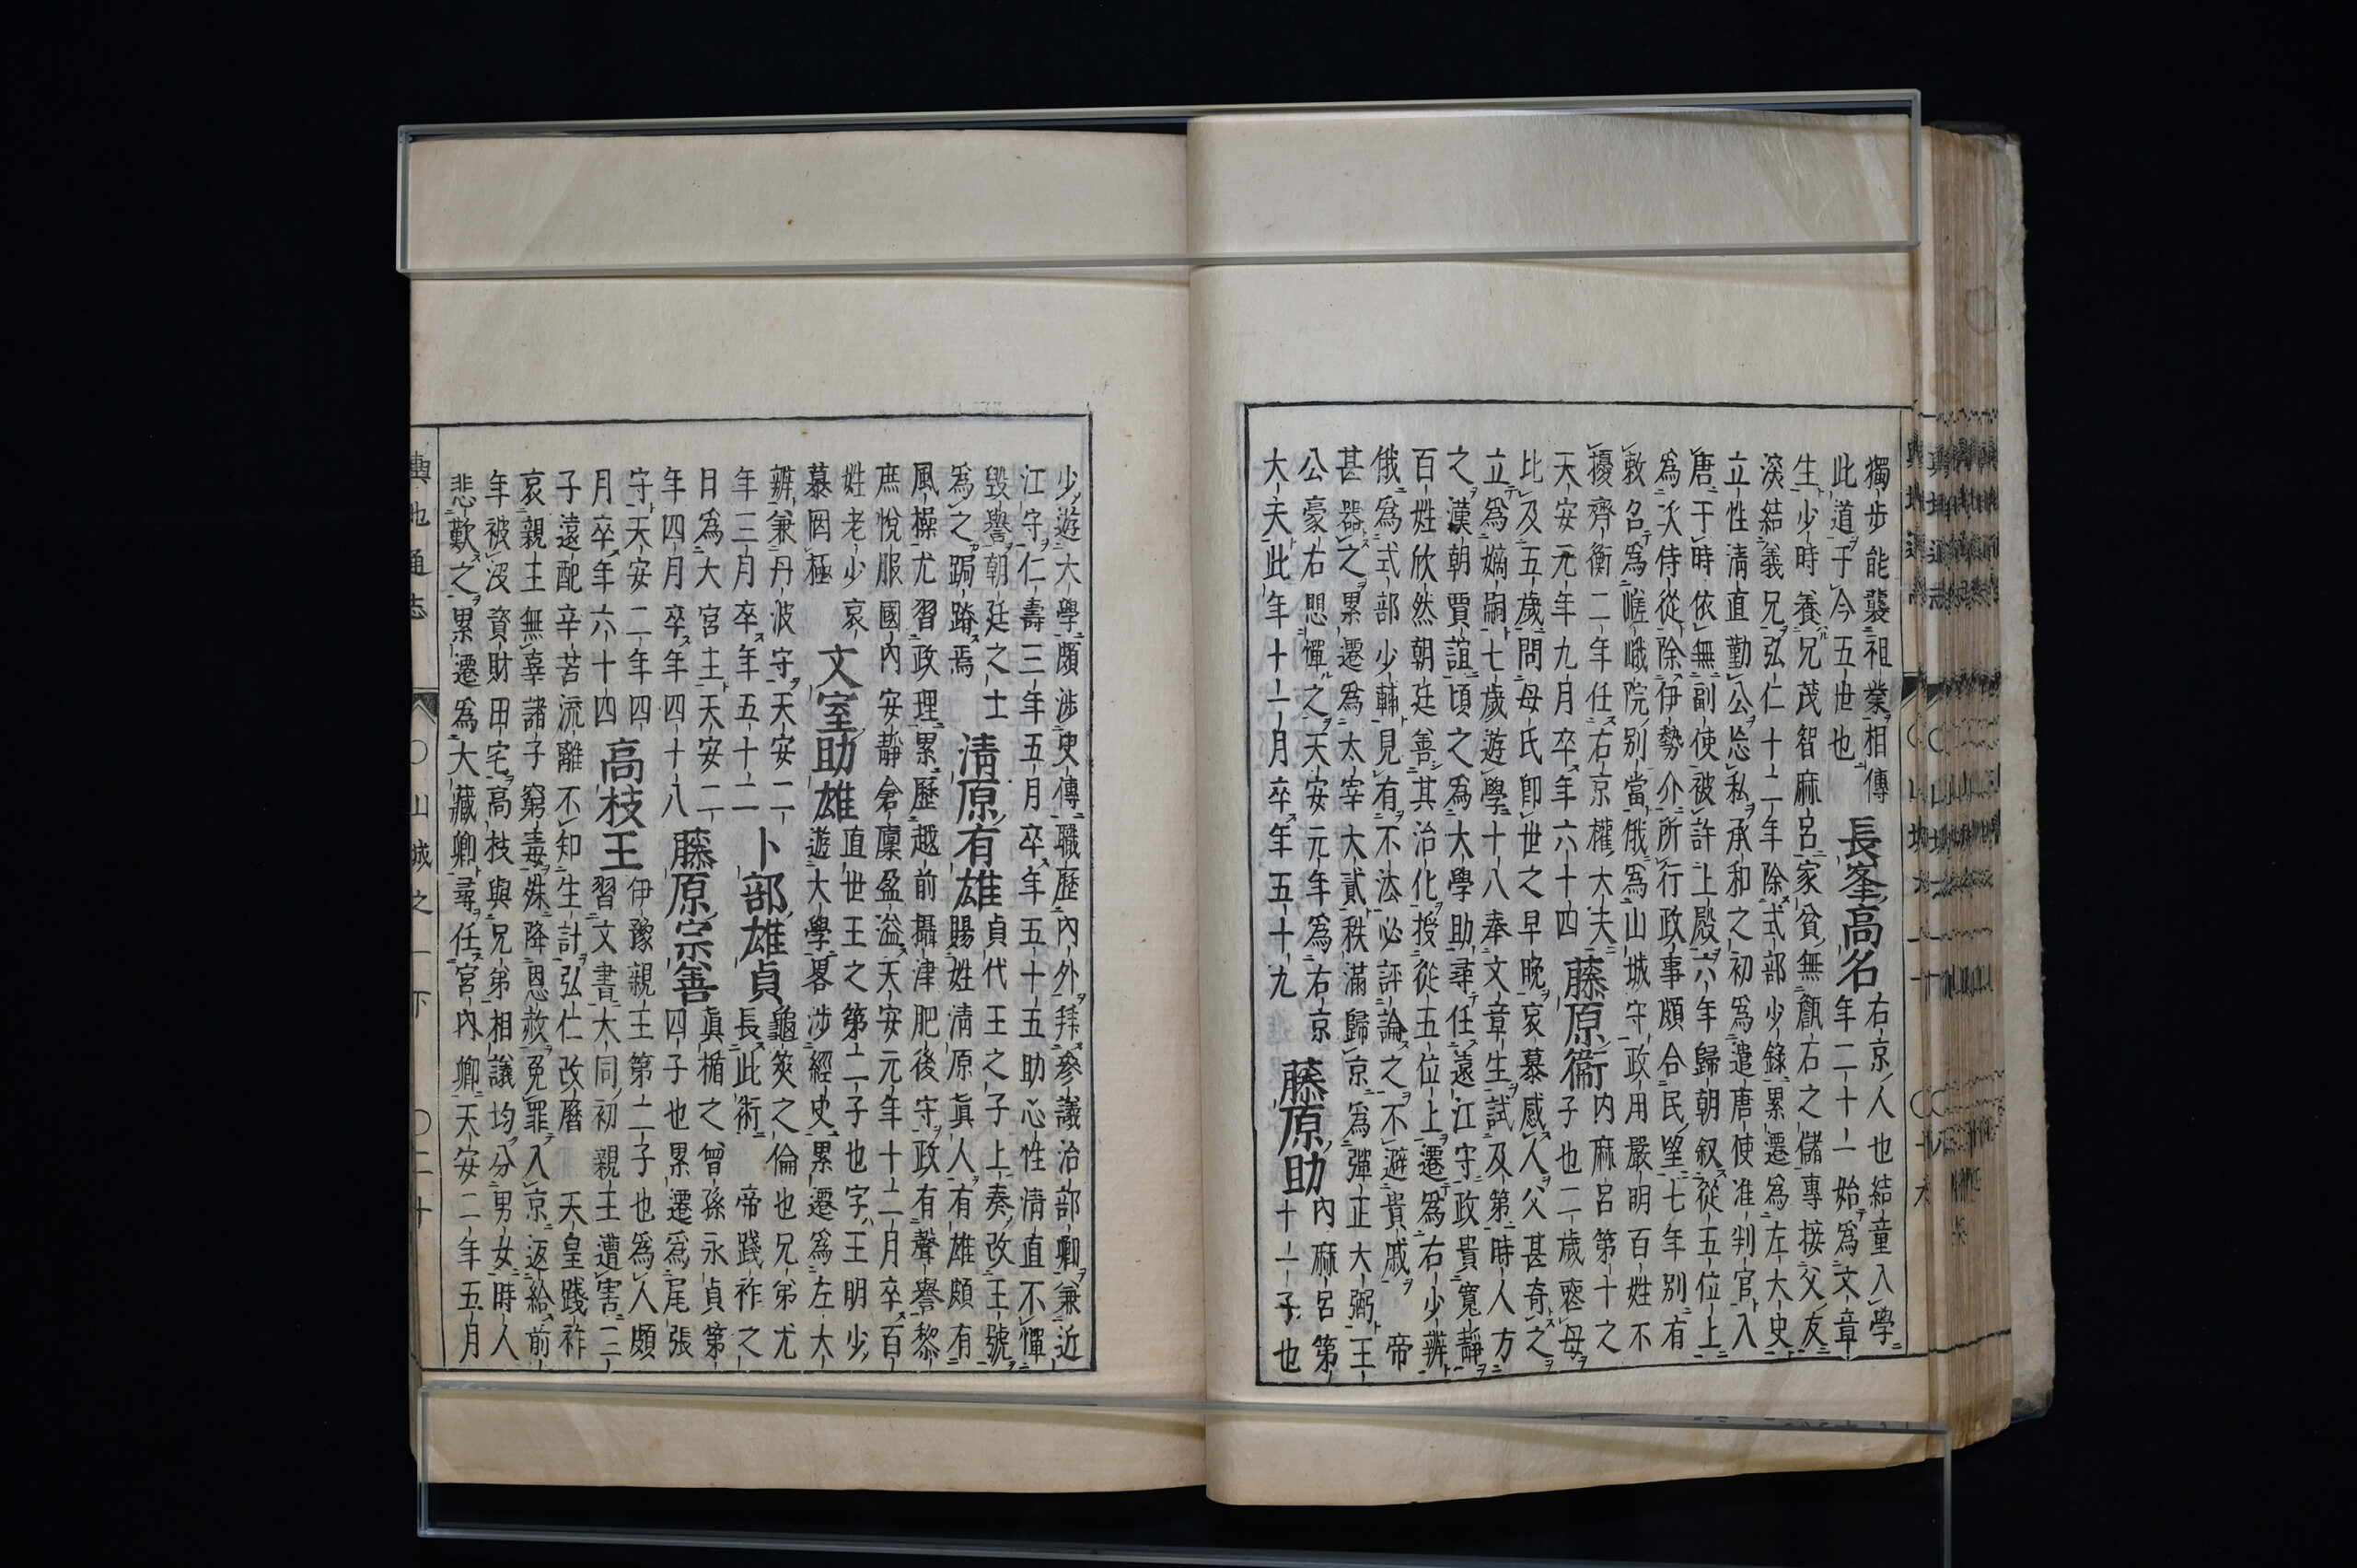 獨步能襲祖業相傳
此道于今五世也
長峯高名
右京人也結童入學
年二十一始爲文章
生少時養兄茂智麻呂家貧無甔石之儲專接父友
淡結義兄弘仁十二年除式部少錄累遷爲左大史
立性清直勤公忘私承和之初爲遣唐使准判官入
唐于時依無副使被許上殿六年歸朝叙從五位上
爲次侍從除伊勢介所行政事頗合民望七年別有
敕名爲嵯峨院別當俄爲山城守政用嚴明百姓不
擾齊衡二年任右京權大夫
天安元年九月卒年六十四
藤原衞
内麻呂第十之
子也二歲喪母
比及五歲問母氏卽世之早晚哀慕感人父甚奇之
立爲嫡嗣七歲遊學十八奉文章生試及第時人方
之漢朝賈誼頃之爲大學助尋任遠江守政貴寬靜
百姓欣然朝廷善其治化授從五位上遷爲右少辨
俄爲式部少輔見有不法必評論之不避貴戚 帝
甚器之累遷爲太宰大貳秩滿歸京爲彈正大弼王
公豪右思憚之天安元年爲右京
大夫此年十一月卒年五十九
藤原助
内麻呂第
十一子也
少遊大學頗涉史傳職歷内外拜參議治部卿兼近
江守仁壽三年五月卒年五十五助心性清直不憚
毀譽朝廷之士
爲之跼蹐焉
清原有雄
貞代王之子上奏改王號
賜姓清原眞人有雄頗有
風操尤習政理累歷越前攝津肥後守政有聲譽黎
庶悅服國内安靜倉廩盈溢天安元年十二月卒百
姓老少哀
慕罔極
文室助雄
直世王之第二子也字王明少
遊大學畧涉經史累遷爲左大
辨兼丹波守天安二
年三月卒年五十二
卜部雄貞
龜筴之倫也兄弟尤
長此術 帝踐祚之
日爲大宮主天安二
年四月卒年四十八
藤原宗善
眞楯之曾孫永貞第
四子也累遷爲尾張
守天安二年四
月卒年六十四
高枝王
伊豫親王第二子也爲人頗
習文書大同初親王遭害二
子遠配辛苦流離不知生計弘仁改曆 天皇踐祚
哀親王無辜諸子窮毒殊降恩赦免罪入京返給前
年被沒資財田宅高枝與兄弟相議均分男女時人
悲歎之累遷爲大藏卿尋任宮内卿天安二年五月
輿地通志 〇山城之一下 〇二十